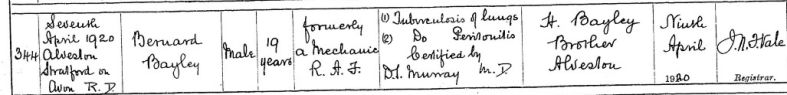 344
Seventh
April 1920
Alveston
Stratford on
Avon R.D
Bernard
Bayley
Male
19
years
formerly
a Mechanic
R.A.F.
(1) Tuberculosis of lungs
(2) Do Peritonitis
Certified by
D.L. Murray M.D.
H. Bayley
Brother
Alveston
Ninth
April
1920
J.N.F. Vale
Registrar.